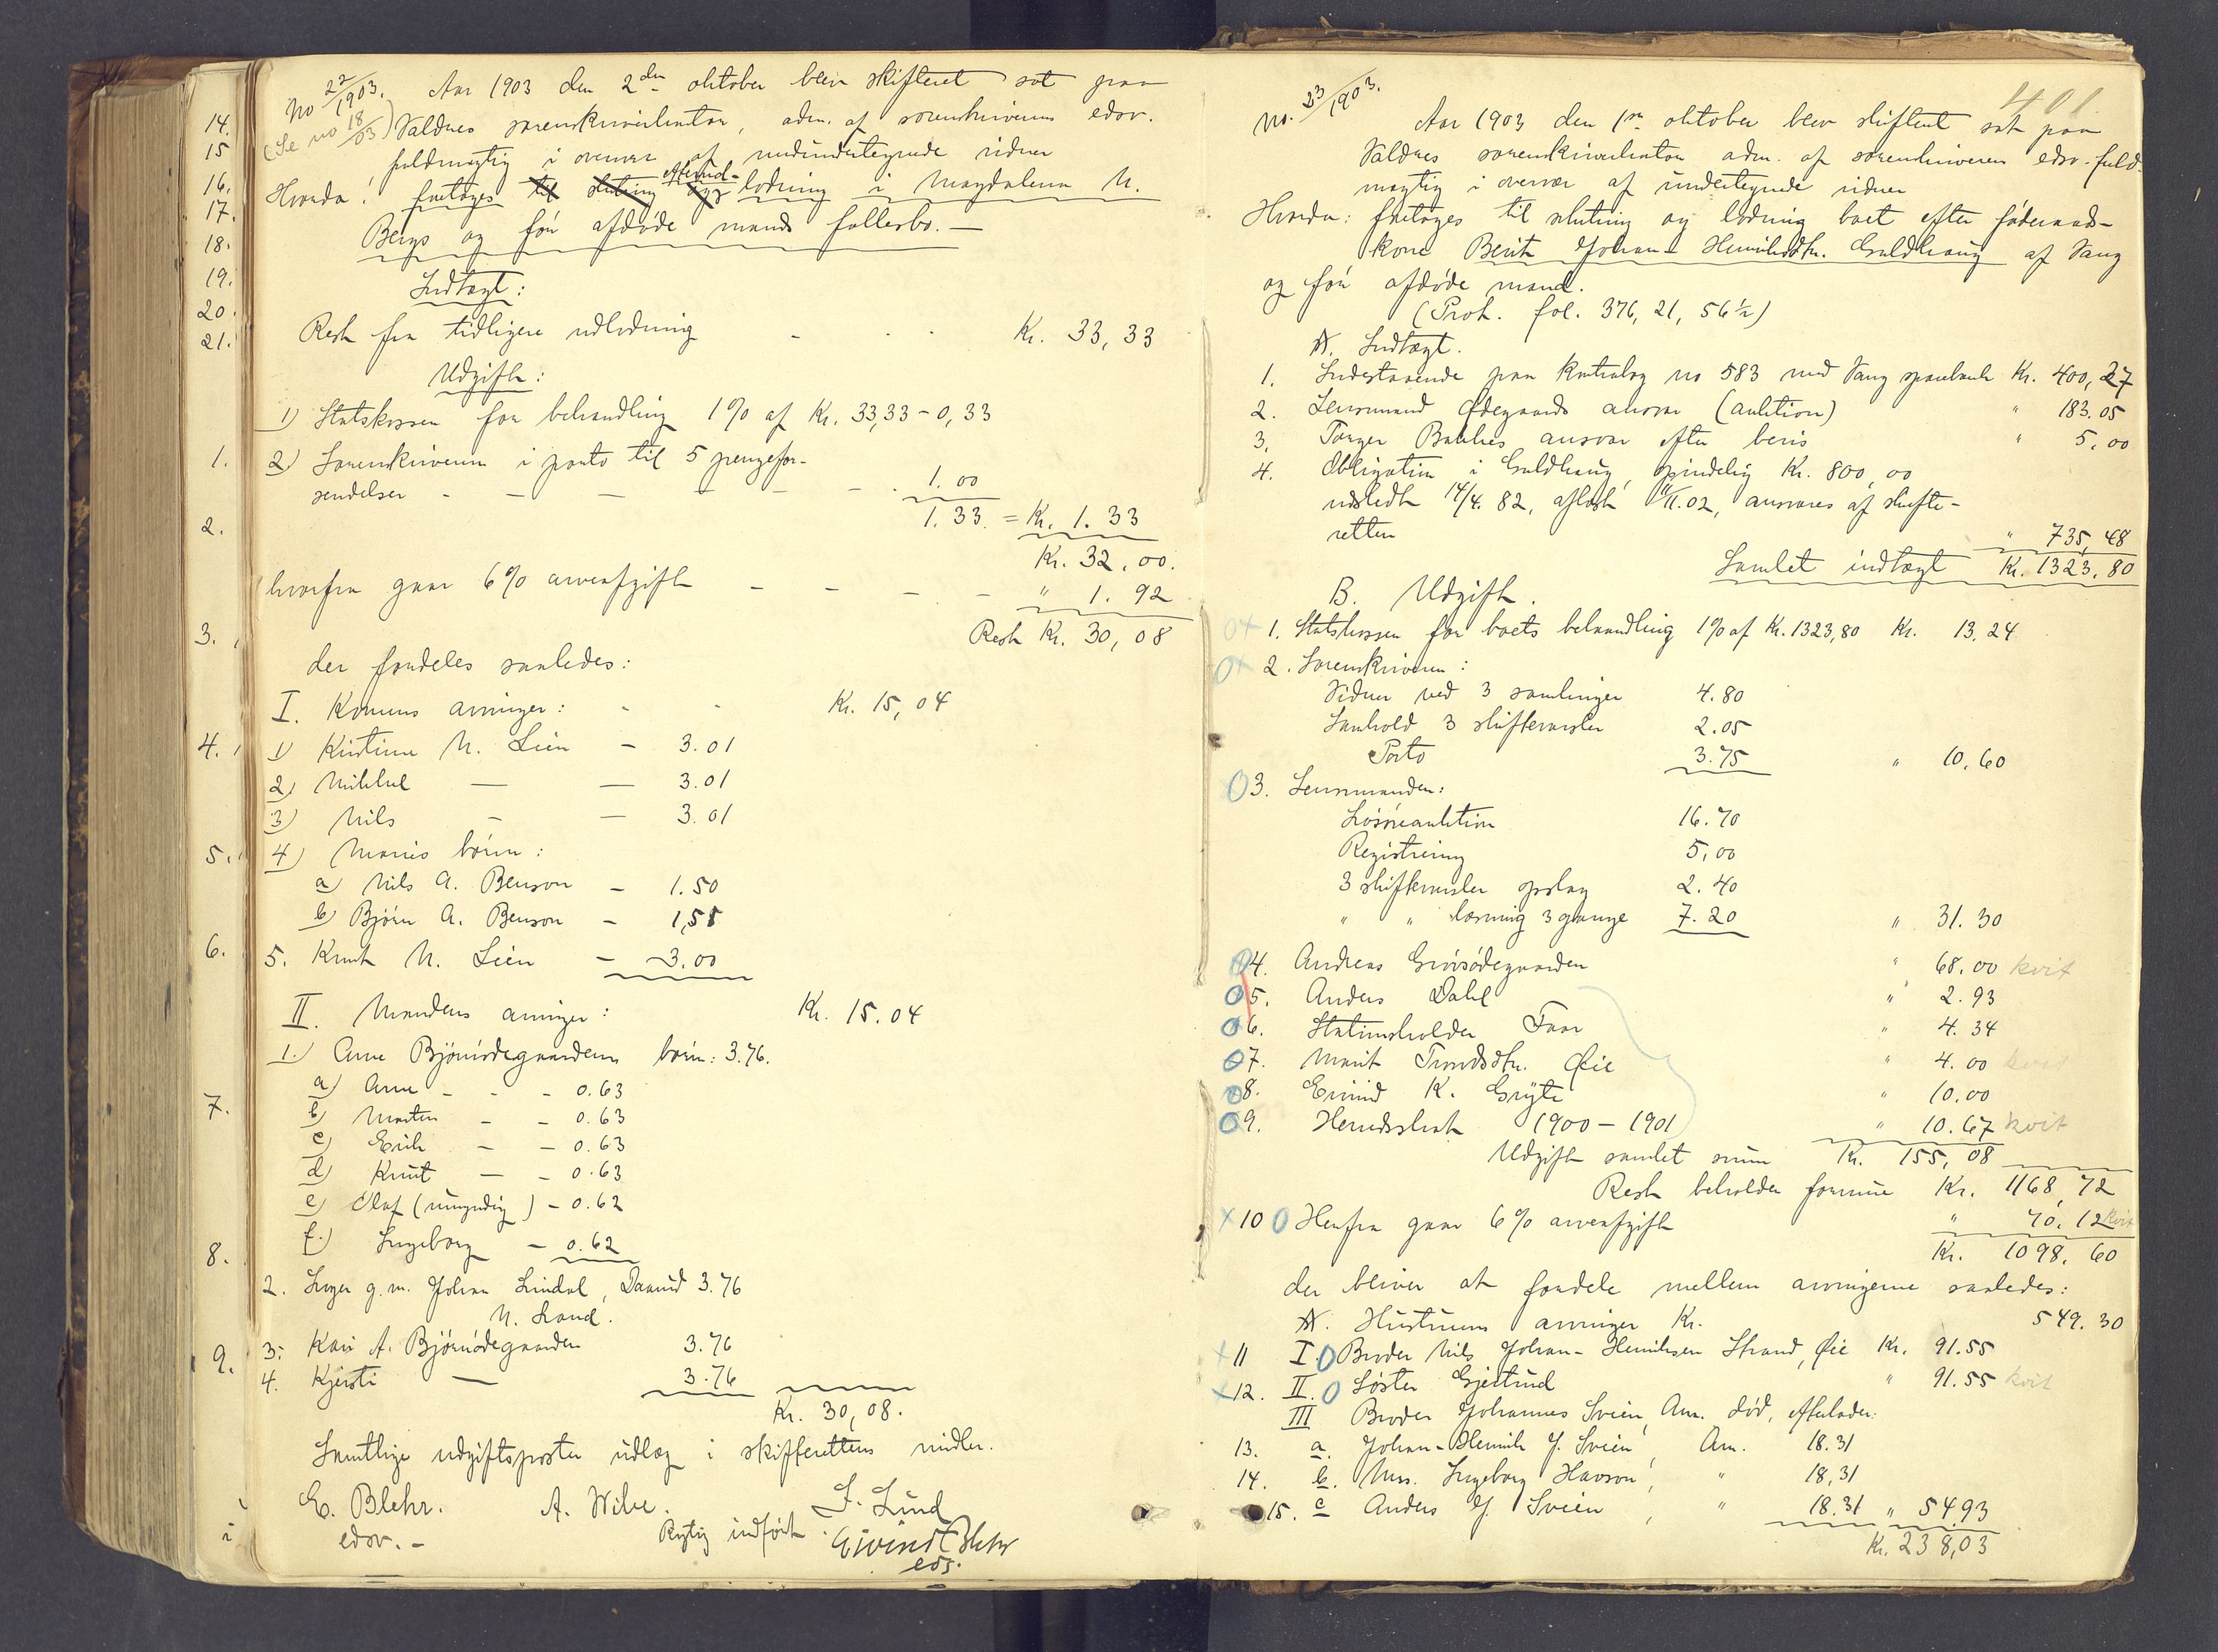 14.
15
16.
17.
18.
19.
20.
21.
1.
2.
3.
4.
5.
6.
7.
8.
9.
No 22/1903. Aar 1903 den 2den oktober blev skifteret sat paa
(Se no 18/03) Valdres sorenskriverkontor, adm. af sorenskriverens edsv.
fuldmægtig i overvær af medundertegnede vidner
Hvorda: foretoges til slutning og efterud-lodning i Magdalena N.
Bergs og før afdøde mands fællesbo. —
Indtægt:
Rest fra tidligere udlodning - - - Kr. 33,33
Udgift:
1) Statskassen for behandling 1% af Kr. 33,33 - 0,33
2) Sorenskriveren i porto til 5 pengefor-
sendelser - - - - - - 1.00
1.33. = Kr. 1.33
Kr. 32.00.
hvorfra gaar 6% arveafgift - - - - " 1.92
Rest Kr. 30,08
der fordeles saaledes:
I. Konens arvinger: - - Kr. 15,04
1) Kristine N. Lien - 3.01
2) Mikkel — — 3.01
3) Nils - — 3.01
4) Maris børn:
a) Nils A. Benson - 1.50
b) Bjørn A. Benson - 1,51
5. Knut N. Lien - 3,00
II. Mandens arvinger: Kr. 15.04
1.) Arne Bjørnødegaardens børn: 3.76.
a) Arne - - - 0.63
b) Marten - - 0.63
c) Erik - - 0.63
d) Knut — - 0.63
e) Olaf (umyndig) - 0.62
f.) Ingeborg - 0.62
2. Inger g.m. Johan Lindal, Daarud 3.76
N. Land.
3. Kari A. Bjørnødegaarden 3.76
4. Kjersti — 3.76
Kr. 30,08.
Samtlige udgiftsposter udlæg i skifterettens midler.
E. Blehr. A. Wibe. J. Lund
edsv. - Rigtig indført: Eivind Blehr
eds.
401.
No. 23/1903.
Aar 1903 den 1ste oktober blev skifteret sat paa
Valdres sorenskriverkontor adm. af sorenskriverens edsv. fuld-
mægtig i overvær af undertegnede vidner
Hvorda: foretoges til slutning og lodning boet efter føderaads-
kone Berit Johan-Henriksdtr. Guldhaug af Vang
og før afdøde mand.
(Prot. fol. 376, 21, 56½)
A. Indtægt.
1. Indestaaende paa Kontrabog no 583 med Vang sparebank Kr. 400,27
2. Lensmand Ødegaards ansvar (auktion) " 183.05
3. Torger Bakkes ansvar efter bevis " 5.00
4. Obligation i Guldhaug, oprindelig Kr. 800,00
udstedt 14/4. 82, aflæst 11/11.02, ansvares af skifte-
retten " 735,48
Samlet indtægt Kr. 1323,80
B. Udgift.
1. Statskassen for boets behandling 1% af Kr. 1323,80 Kr. 13,24
2. Sorenskriveren:
Vidner ved 3 samlinger 4.80
Indhold 3 skiftevarsler 2.05
Porto 3.75 " 10,60
3. Lensmanden:
Løsøreauktion 16.70
Registrering 5,00
3 skiftevarsler opslag 2.40
" " læsning 3 gange 7.20 " 31.30
4. Andreas Grøvsødegaarden " 68.00 kvit
5. Anders Dahl " 2.93
6. Stationsholder Faar " 4.34
7. Marit Trondsdtr. Øie " 4.00 kvit
8. Eivind K. Gryte " 10.00
9. Herredsskat 1900 - 1901 " 10.67 kvit
Udgift samlet sum Kr. 155,08
Rest beholden formue Kr. 1168,72
10 Herfra gaar 6% arveafgift " 70.12 kvit
Kr. 1098.60
der bliver at fordele mellem arvingerne saaledes:
A. Hustruens arvinger Kr. 549.30
11 I. Broder Nils Johan-Henriksen Strand, Øie Kr. 91.55
12. II. Søster Gjertrud " 91.55 kvit
III Broder Johannes Svien, Am. død, efterlader:
13. a. Johan-Henrik J. Svien, Am. 18.31
14. b. Mrs. Ingeborg Havson, " 18,31
15. c Anders J. Svien, " 18.31 " 54.93
Kr. 238,03